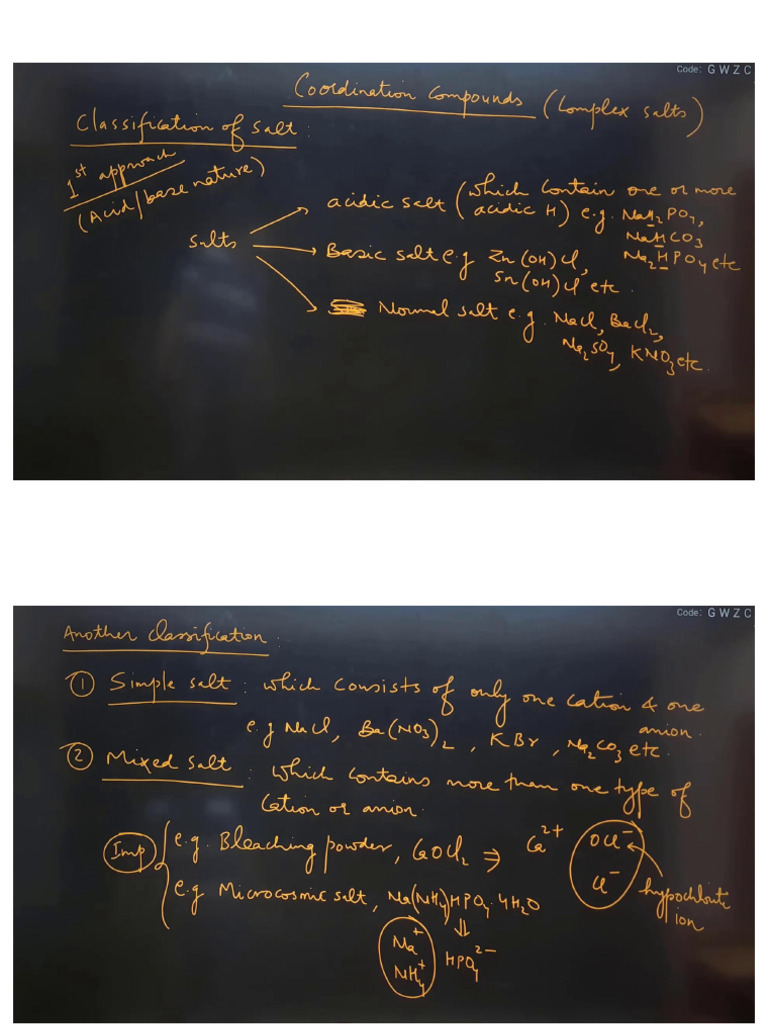 Code: G W Z C
Coordination Compounds (Complex salts)
Classification of salt:
1st approach
(Acid/base nature)
salts
acidic salt (which contain one or more
acidic H) e.g. NaH2PO4,
NaHCO3
Na2HPO4 etc
Basic salt e.g Zn(OH)Cl,
Sn(OH)Cl etc.
Normal salt e.g. NaCl, BaCl2,
Na2SO4, KNO3 etc.
Code: G W Z C
Another classification:
① Simple salt: which consists of only one cation & one
anion.
e.g NaCl, Ba(NO3)2, KBr, Na2CO3 etc.
② Mixed salt: which contains more than one type of
cation or anion.
Imp
e.g. Bleaching powder, CaOCl2 ⇒ Ca2+ OCl− Cl−
hypochlorite
ion
e.g Microcosmic salt, Na(NH4)HPO4.4H2O
⇓
Na+ HPO4 2−
NH4+